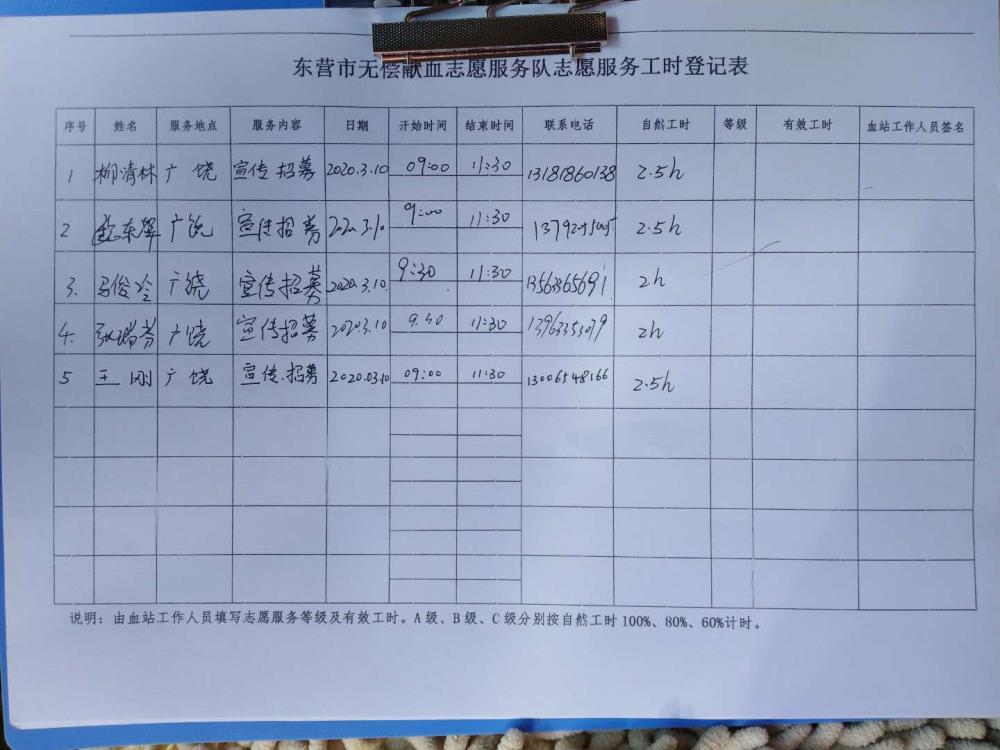 东营市无偿献血志愿服务队志愿服务工时登记表
序号 姓名 服务地点 服务内容 日期 开始时间 结束时间 联系电话 自然工时 等级 有效工时 血站工作人员签名
1 柳清林 广饶 宣传招募 2020.3.10 09:00 11:30 13181860138 2.5h
2 广饶 宣传招募 2020.3.10 9:00 11:30 2.5h
3. 马俊玲 广饶 宣传招募 2020.3.10. 9:30 11:30 13563365691 2h
4. 张瑞芬 广饶 宣传招募 2020.3.10 9.30 11:30 13963353079 2h
5 王刚 广饶 宣传.招募 2020.03.10 09:00 11:30 13006548166 2.5h
说明：由血站工作人员填写志愿服务等级及有效工时。A级、B级、C级分别按自然工时100%、80%、60%计时。